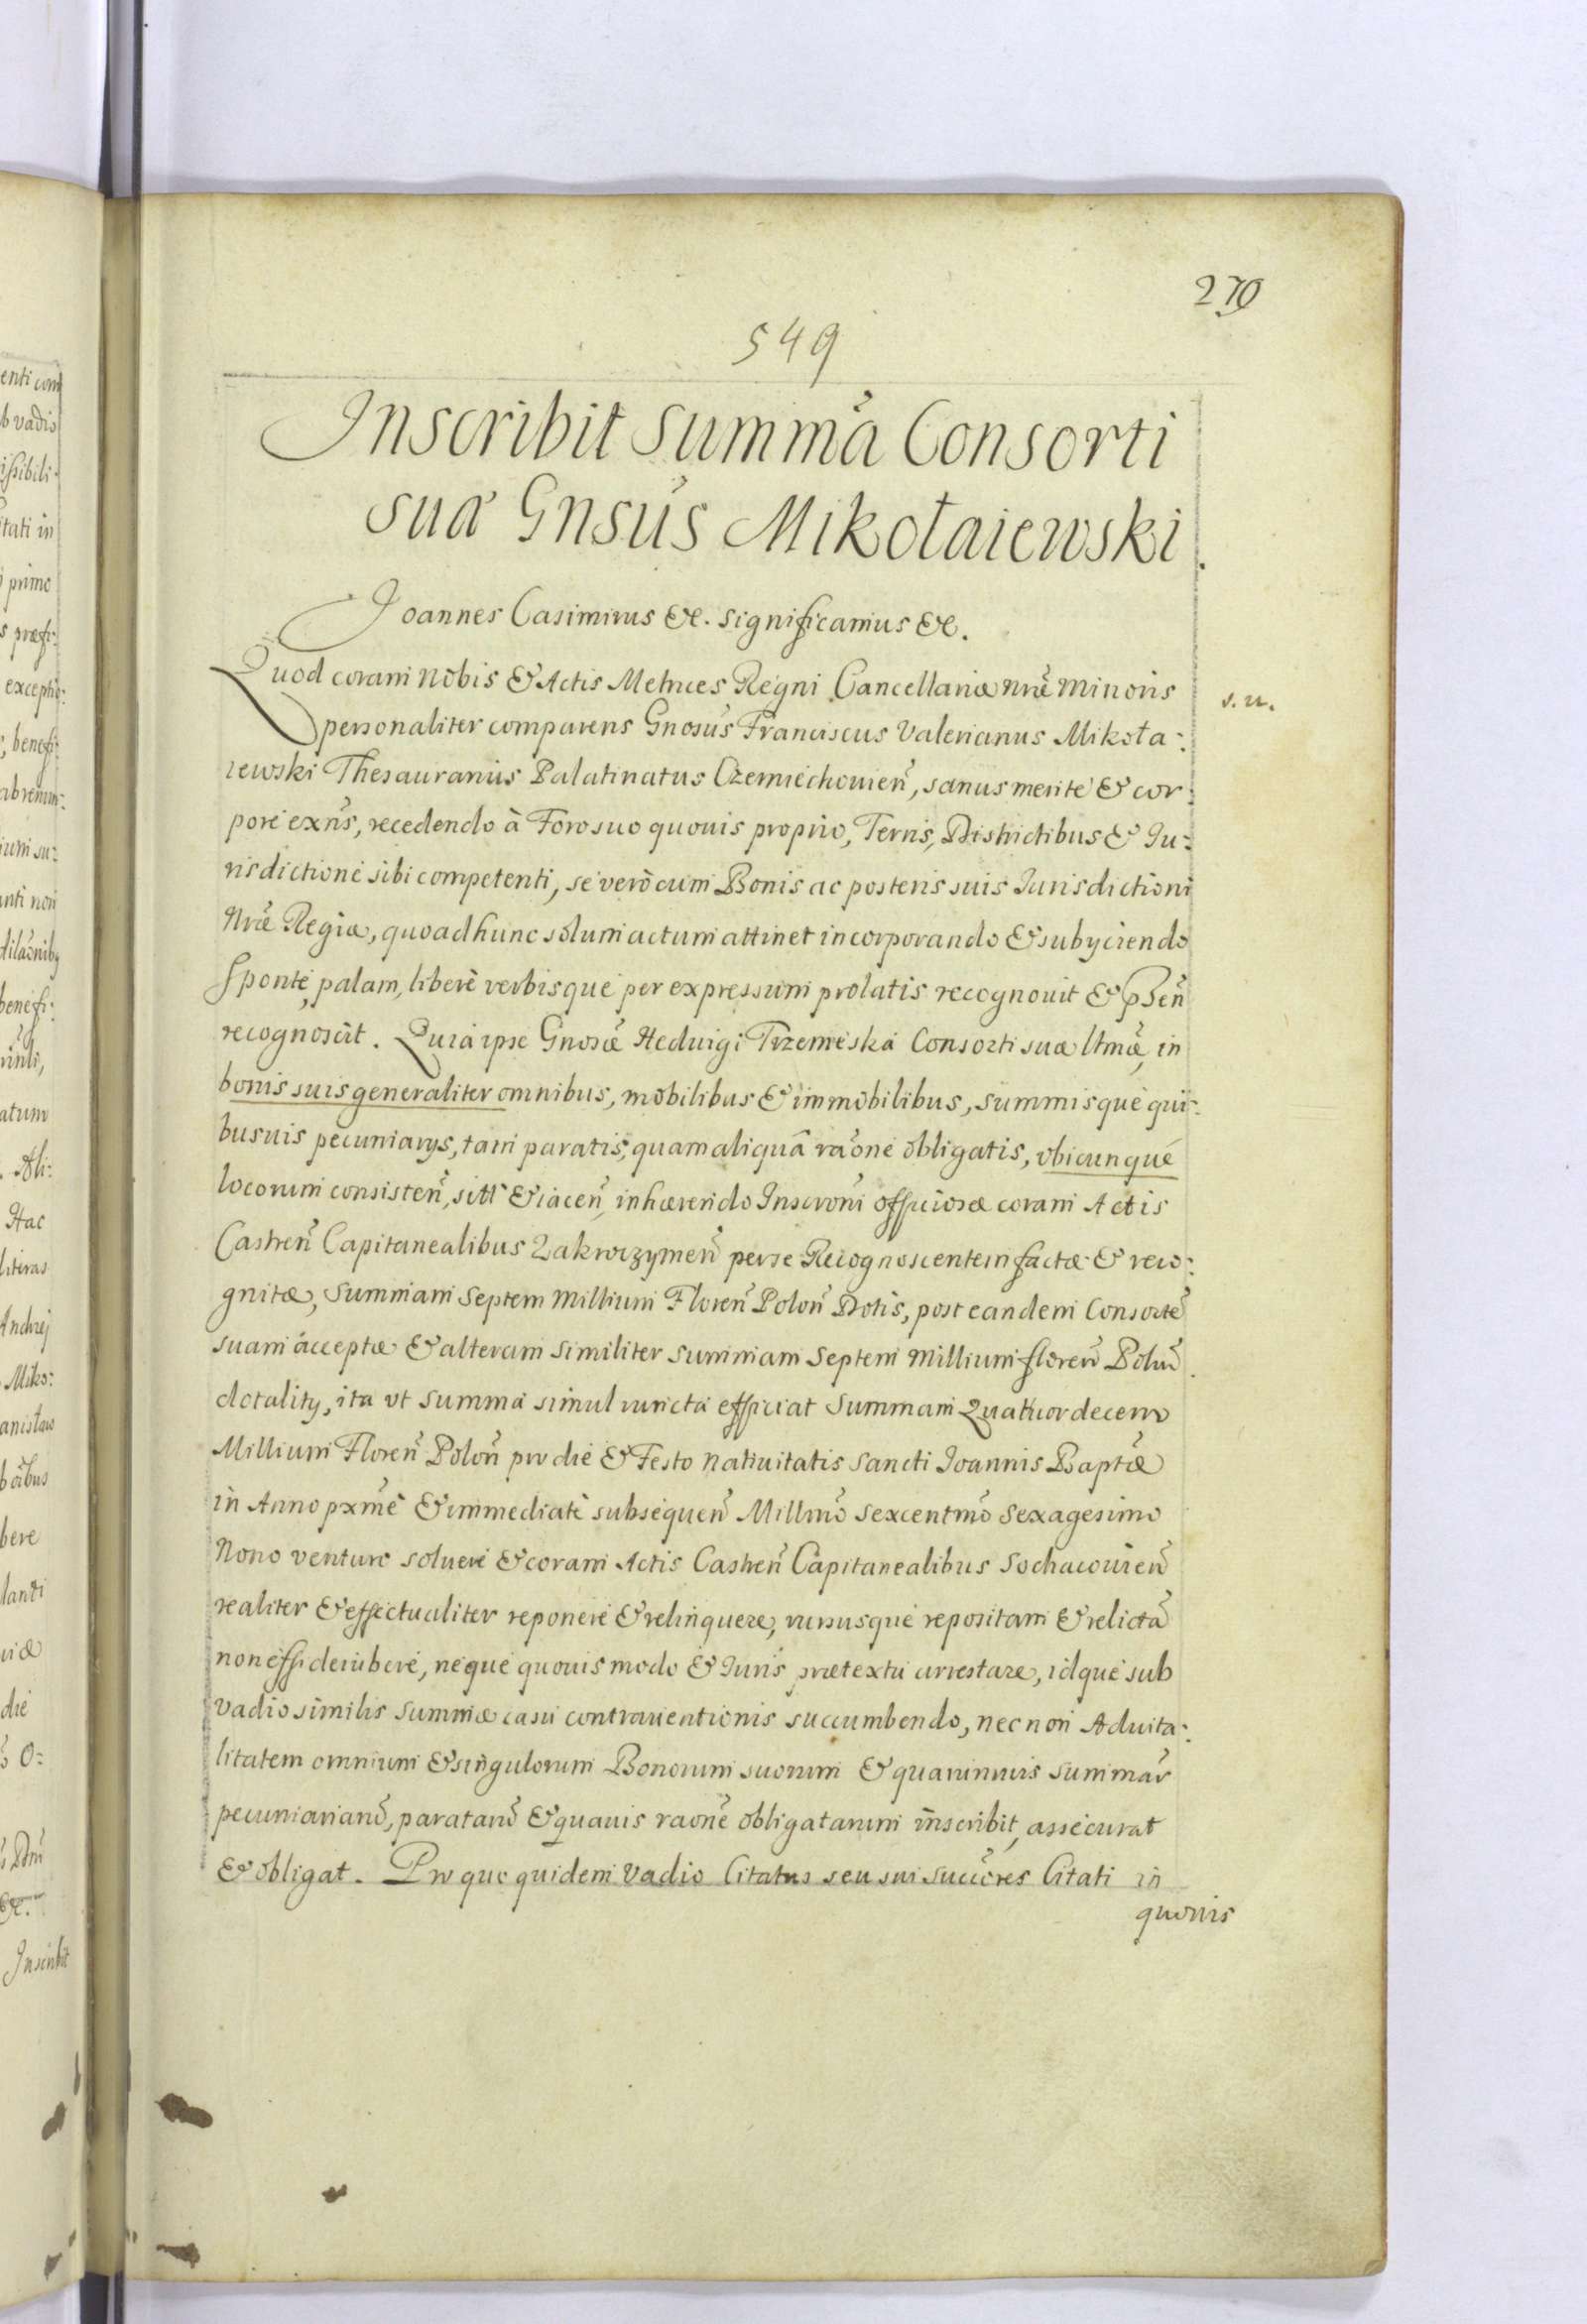 270
549
Inscribit Summã Consorti
suæ Gnsus Mikołaiewski.
Joannes Casimirus &c. significamus &c.
Quod coram Nobis & Actis Metrices Regni Cancellariæ Nræ Minoris
s. n.
personaliter comparens Gnosus Franciscus Valerianus Mikoła:
iewski Thesaurarius Palatinatus Czerniechouień, sanus mente & cor:
pore exns, recedendo à Foro suo quouis proprio, Terris, Districtibus & Iu:
risdictione sibi competenti, se verò cum Bonis ac posteris suis Iurisdictioni
Nræ Regiæ, quo ad hunc solum actum attinet incorporando & subyciendo
sponte, palam, liberè verbisque per expressum prolatis recognouit & pñ
recognoscit. Quia ipse Gnosæ Heduigi Trzemeska Consorti suæ ltmæ, in
bonis suis generaliter omnibus, mobilibus & immobilibus, summisque qui:
busuis pecuniarys, tam paratis, quam aliquâ raone obligatis, vbicunque
locorum consisteñ, sitt & iaceñ, inhærendo Inscroni officiosæ coram Actis
Castreñ Capitanealibus Zakroczymeñ per se Recognoscentem factæ & reco:
gnitæ, Summam Septem Millium Floreñ Poloñ Dotis, post eandem Consortẽ
suam acceptæ & alteram similiter summam Septem Millium floreñ Polon
dotality, ita vt summa simul iuncta efficiat Summam Quatuordecem
Millium Floreñ Poloñ pro die & Festo Natiuitatis Sancti Ioannis Baptæ
in Anno pxme & immediatè subsequeñ Millmo Sexcentmo Sexagesimo
Nono venturo soluere & coram Actis Castreñ Capitanealibus Sochacouieñ
realiter & effectualiter reponere & relinquere, rursusque repositam & relictã
non, neque quouis modo & Iuris prætextu arrestare, idque sub
vadio similis summæ casu contrauentionis succumbendo, nec non Aduita:
litatem omnium & singulorum Bonorum suorum & quarumuis summar
pecuniariarũ, paratarũ & quauis raone obligatarum inscribit, assecurat
& obligat. Pro quo quidem Vadio Citatus seu sui succeres Citati in
quouis